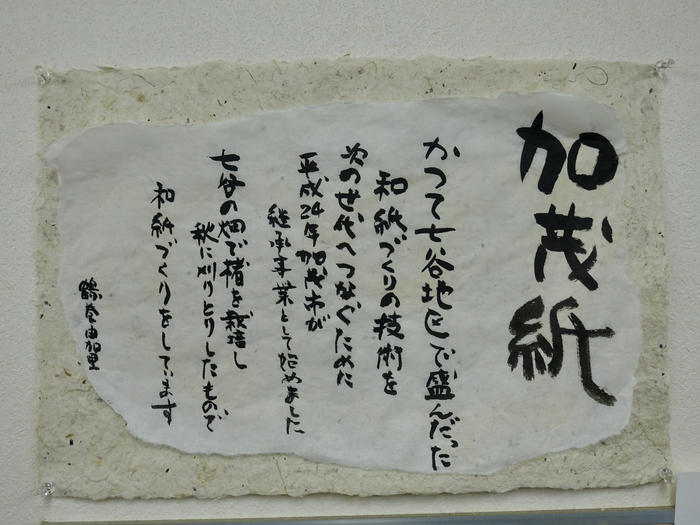 加茂紙
かつて七谷地区で盛んだった
和紙づくりの技術を
次の世代へつなぐために
平成24年加茂市が
継承事業として始めました
七谷の畑で楮を栽培し
秋に刈りとりしたもので
和紙づくりをしています
鶴巻由加里